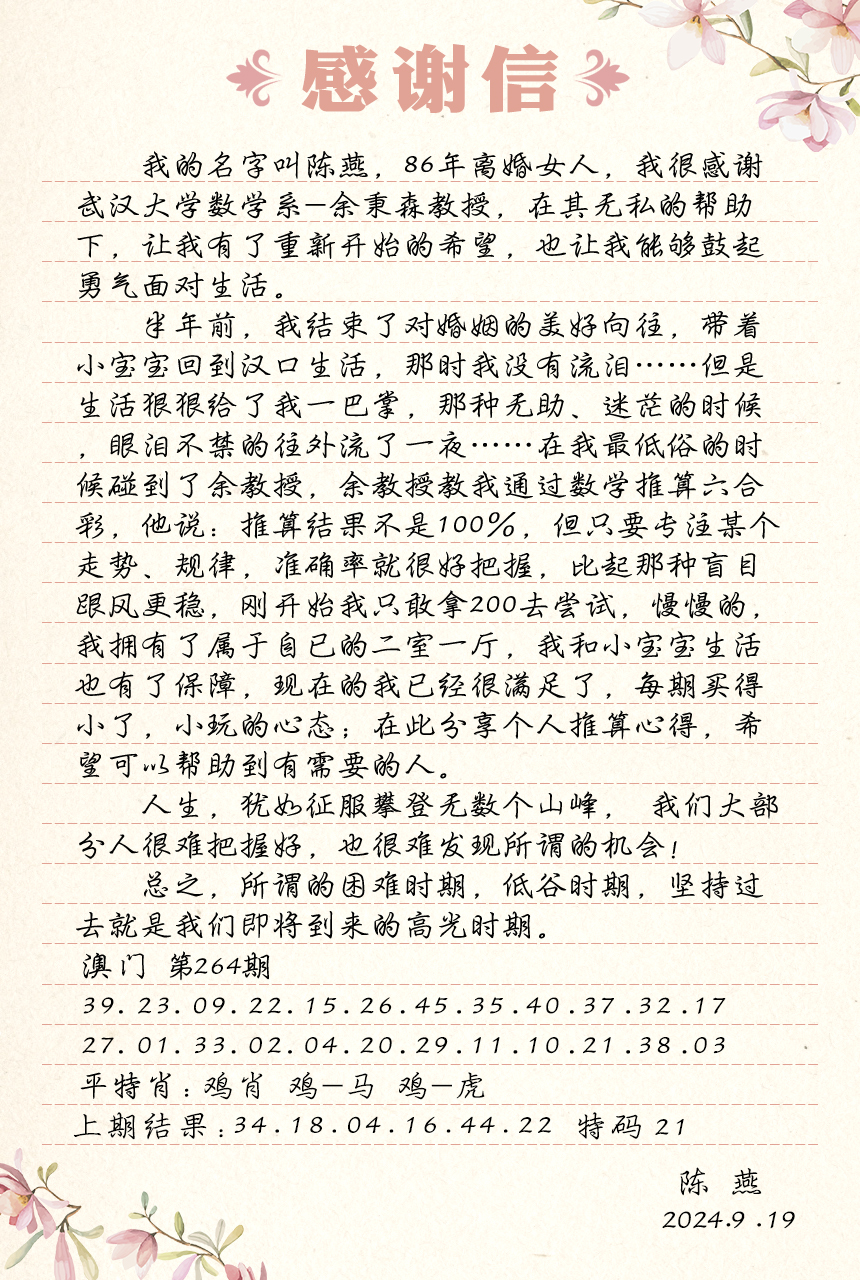 感谢信
我的名字叫陈燕，86年离婚女人，我很感谢
武汉大学数学系—余秉森教授，在其无私的帮助
下，让我有了重新开始的希望，也让我能够鼓起
勇气面对生活。
半年前，我结束了对婚姻的美好向往，带着
小宝宝回到汉口生活，那时我没有流泪……但是
生活狠狠给了我一巴掌，那种无助、迷茫的时候
，眼泪不禁的往外流了一夜……在我最低俗的时
候碰到了余教授，余教授教我通过数学推算六合
彩，他说：推算结果不是100%，但只要专注某个
走势、规律，准确率就很好把握，比起那种盲目
跟风更稳，刚开始我只敢拿200去尝试，慢慢的，
我拥有了属于自已的二室一厅，我和小宝宝生活
也有了保障，现在的我已经很满足了，每期买得
小了，小玩的心态；在此分享个人推算心得，希
望可以帮助到有需要的人。
人生，犹如征服攀登无数个山峰， 我们大部
分人很难把握好，也很难发现所谓的机会！
总之，所谓的困难时期，低谷时期，坚持过
去就是我们即将到来的高光时期。
澳门 第264期
39.23.09.22.15.26.45.35.40.37.32.17
27.01.33.02.04.20.29.11.10.21.38.03
平特肖：鸡肖 鸡—马 鸡—虎
上期结果：34.18.04.16.44.22 特码 21
陈 燕
2024.9.19